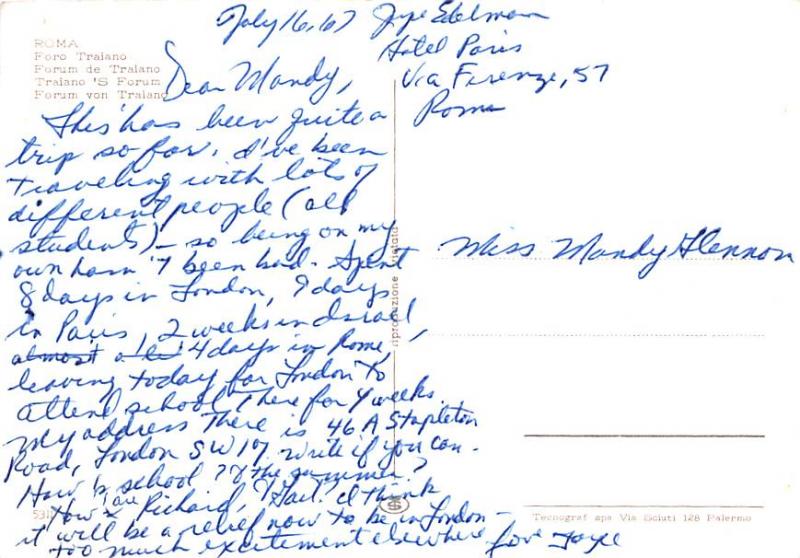 July 16, 67
Joyce Edelman
Hotel Paris
Via Firenze, 57
Roma
ROMA
Foro Traiano
Forum de Traiano
Traiano 'S Forum
Forum von Traiano
Dear Mandy,
This has been quite a
trip so far. I've been
traveling with lots of
different people (all
students) – so being on my
own hasn't been bad. Spent
8 days in London, 9 days
in Paris, 2 weeks in Israel,
almost a 4 days in Rome,
leaving today for London to
attend school there for 4 weeks.
My address there is 46 A Stapleton
Road, London SW 17. Write if you can.
How's school? & the summer?
How are Richard, Gail? I think
it will be a relief now to be in London –
too much excitement elsewhere
Love Joyce
Miss Mandy Glennon
riproduzione vietata
Tecnograf spa Via Sciuti 128 Palermo